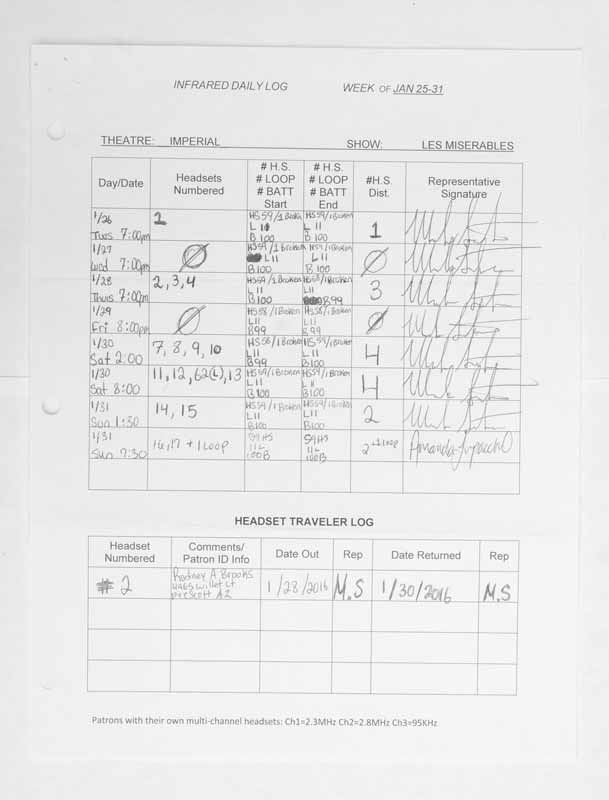 INFRARED DAILY LOG WEEK OF JAN 25-31
THEATRE: IMPERIAL SHOW: LES MISERABLES
Day/Date
Headsets
Numbered
# H.S.
# LOOP
# BATT
Start
# H.S.
# LOOP
# BATT
End
#H.S.
Dist.
Representative
Signature
1/26
Tues 7:00pm
2
HS 59/1 Broken
L 11
B 100
HS 59/1 Broken
L 11
B 100
1
1/27
Wed 7:00pm
Ø
HS 59/1 Broken
L 11
B 100
HS 59/1 Broken
L 11
B 100
Ø
1/28
Thurs 7:00pm
2, 3, 4
HS 59/1 Broken
L 11
B 100
HS 58/1 Broken
L 11
B 99
3
1/29
Fri 8:00pm
Ø
HS 58/1 Broken
L 11
B 99
HS 58/1 Broken
L 11
B 99
Ø
1/30
Sat 2:00
7, 8, 9, 10
HS 58/1 Broken
L 11
B 99
HS 59/1 Broken
L 11
B 100
4
1/30
Sat 8:00
11, 12, 62(L), 13
HS 59/1 Broken
L 11
B 100
HS 59/1 Broken
L 11
B 100
4
1/31
Sun 1:30
14, 15
HS 59/1 Broken
L 11
B 100
HS 59/1 Broken
L 11
B 100
2
1/31
Sun 7:30
16, 17 + 1 Loop
59 HS
11 L
100B
59 HS
11 L
100B
2 +1 Loop
Amanda
HEADSET TRAVELER LOG
Headset
Numbered
Comments/
Patron ID Info
Date Out
Rep
Date Returned
Rep
# 2
Rodney A Brooks
Willet Ct
Prescott AZ
1/28/2016
M.S
1/30/2016
M.S
Patrons with their own multi-channel headsets: Ch1=2.3MHz Ch2=2.8MHz Ch3=95KHz